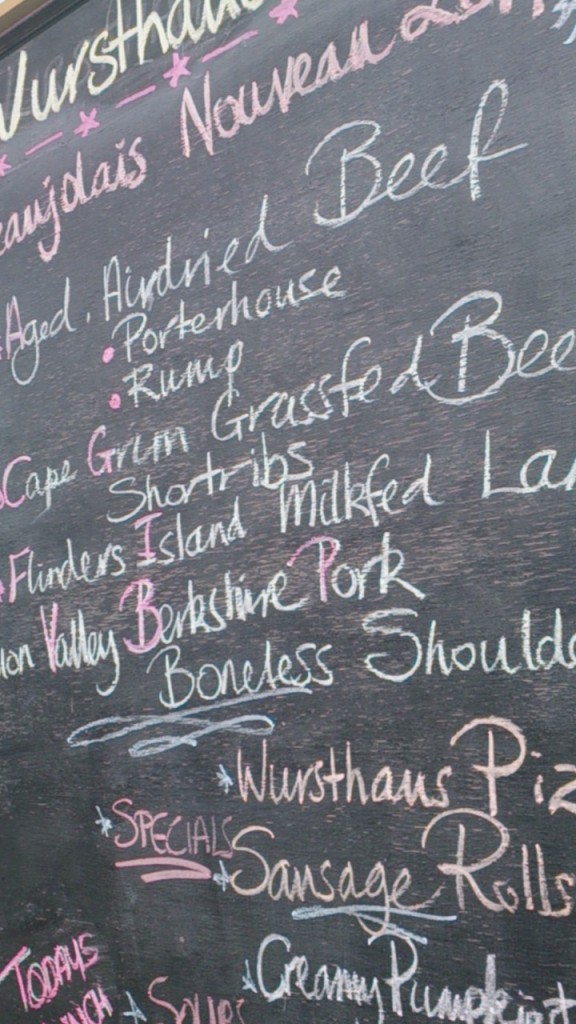 Wursthaus
eaujolais Nouveau
Aged . Airdried Beef
• Porterhouse
• Rump
Cape Grim Grassfed Bee
Shortribs
Flinders Island Milkfed La
Valley Berkshire Pork
Boneless Shoulde
Wursthaus Piz
SPECIALS
Sausage Rolls
TODAYS
Creamy Pumpkin
Soups